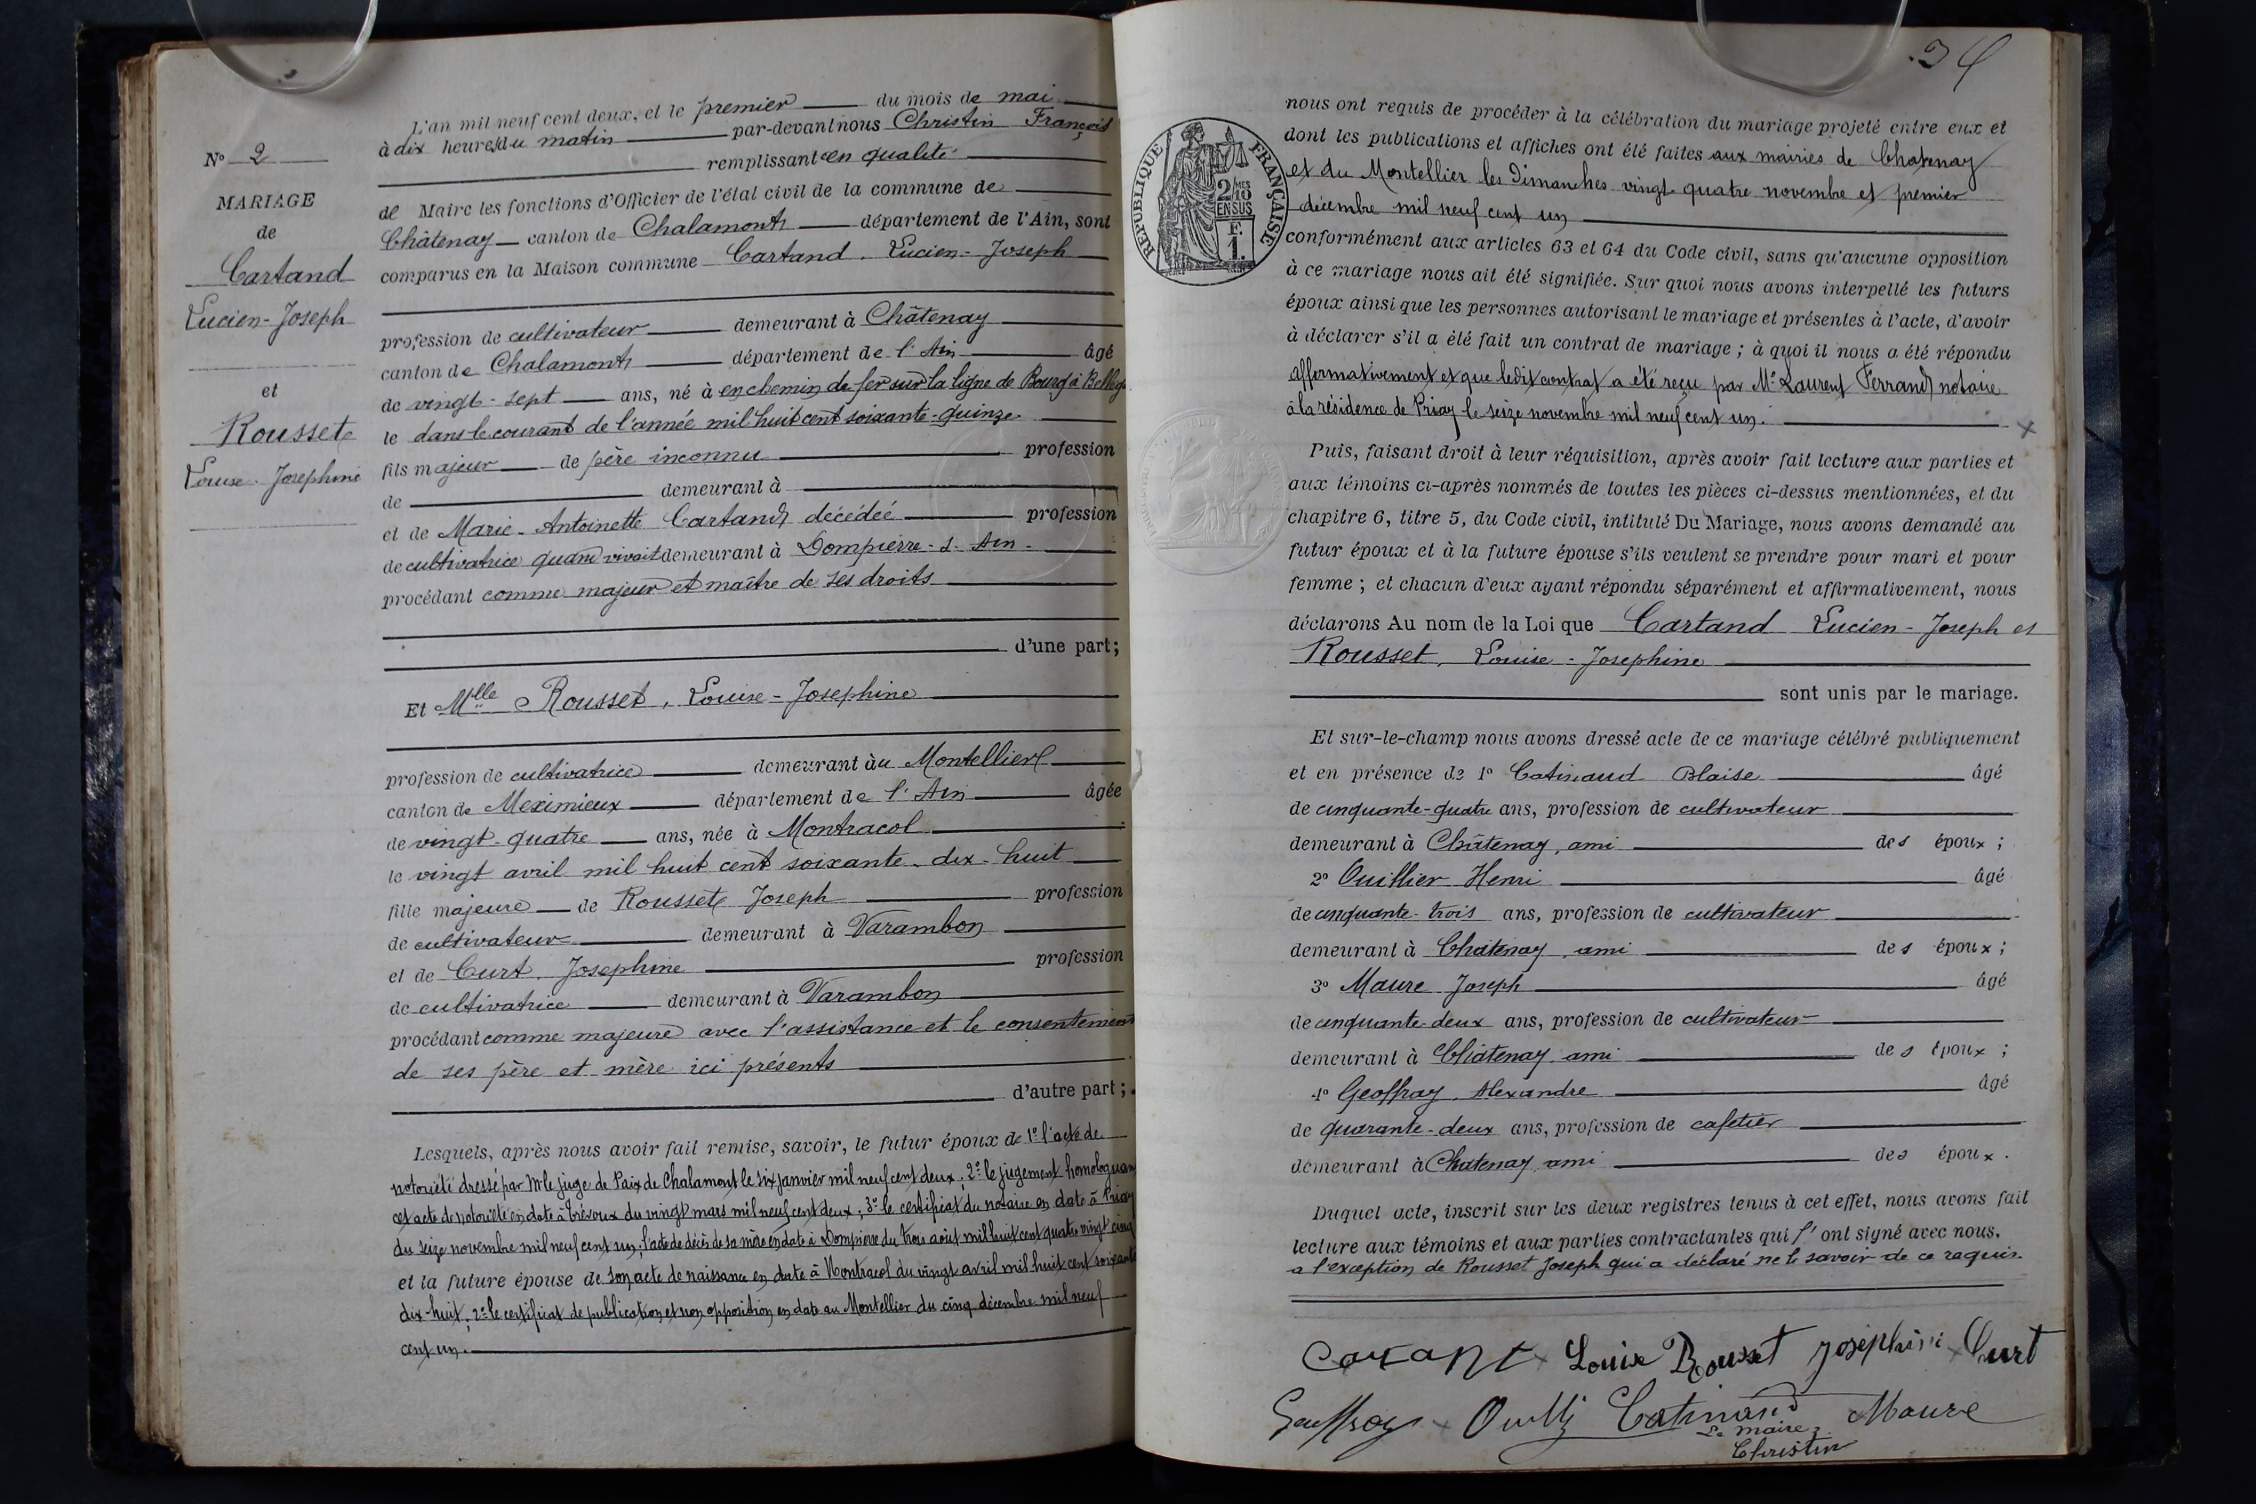 L'an mil neuf cent deux, et le premier du mois de mai
à dix heures du matin par-devant nous Christin François
remplissant en qualité
de Maire les fonctions d'Officier de l'état civil de la commune de
Châtenay canton de Chalamont département de l'Ain, sont
comparus en la Maison commune Cartand Lucien-Joseph
profession de cultivateur demeurant à Châtenay
canton de Chalamont département de l'Ain âgé
de vingt-sept ans, né à en chemin de fer sur la ligne de Bourg à Belleg.
le dans le courant de l'année mil huit cent soixante-quinze
fils majeur de père inconnu profession
de demeurant à
et de Marie-Antoinette Cartand décédée profession
de cultivatrice quand vivait demeurant à Dompierre-s-Ain
procédant comme majeur et maître de ses droits
d'une part;
Et Mlle Rousset, Louise-Josephine
profession de cultivatrice demeurant àu Montellier
canton de Meximieux département de l'Ain âgée
de vingt-quatre ans, née à Montracol
le vingt avril mil huit cent soixante-dix-huit
fille majeure de Rousset Joseph profession
de cultivateur demeurant à Varambon
et de Curt Josephine profession
de cultivatrice demeurant à Varambon
procédant comme majeure avec l'assistance et le consentement
de ses père et mère ici présents
d'autre part;
Lesquels, après nous avoir fait remise, savoir, le futur époux de 1° l'acte de
notoriété dressé par Mr le juge de Paix de Chalamont le six janvier mil neuf cent deux; 2° le jugement homologuant
cet acte de notoriété en date à Trévoux du vingt mars mil neuf cent deux; 3° le certificat du notaire en date à Priay
du seize novembre mil neuf cent un; l'acte de décès de sa mère en date à Dompierre du trois août mil huit cent quatre vingt cinq
et la future épouse de son acte de naissance en date à Montracol du vingt avril mil huit cent soixante
dix-huit; 2° le certificat de publication et non opposition en date au Montellier du cinq décembre mil neuf
cent un.
N° 2
MARIAGE
de
Cartand
Lucien-Joseph
et
Rousset
Louise-Josephine
nous ont requis de procéder à la célébration du mariage projeté entre eux et
dont les publications et affiches ont été faites aux mairies de Chatenay
et du Montellier les Dimanches vingt-quatre novembre et premier
décembre mil neuf cent un
conformément aux articles 63 et 64 du Code civil, sans qu'aucune opposition
à ce mariage nous ait été signifiée. Sur quoi nous avons interpellé les futurs
époux ainsi que les personnes autorisant le mariage et présentes à l'acte, d'avoir
à déclarer s'il a été fait un contrat de mariage; à quoi il nous a été répondu
affermativement et que ledit contrat a été reçu par Me Laurent Ferrand notaire
à la résidence de Priay le seize novembre mil neuf cent un.
Puis, faisant droit à leur réquisition, après avoir fait lecture aux parties et
aux témoins ci-après nommés de toutes les pièces ci-dessus mentionnées, et du
chapitre 6, titre 5, du Code civil, intitulé Du Mariage, nous avons demandé au
futur époux et à la future épouse s'ils veulent se prendre pour mari et pour
femme; et chacun d'eux ayant répondu séparément et affirmativement, nous
déclarons Au nom de la Loi que Cartand Lucien-Joseph et
Rousset, Louise-Josephine
sont unis par le mariage.
Et sur-le-champ nous avons dressé acte de ce mariage célébré publiquement
et en présence de 1° Catinaud Blaise âgé
de cinquante-quatre ans, profession de cultivateur
demeurant à Châtenay, ami des époux;
2° Ouillier Henri âgé
de cinquante-trois ans, profession de cultivateur
demeurant à Chatenay, ami des époux;
3° Maure Joseph âgé
de cinquante-deux ans, profession de cultivateur
demeurant à Châtenay, ami des époux;
4° Geoffray, Alexandre âgé
de quarante-deux ans, profession de cafetier
demeurant à Chatenay, ami des époux.
Duquel acte, inscrit sur les deux registres tenus à cet effet, nous avons fait
lecture aux témoins et aux parties contractantes qui l'ont signé avec nous.
a l'exception de Rousset Joseph qui a déclaré ne le savoir de ce requis.
Louise Rousset Joséphine Curt
Geoffray Catinaud Maure
Le Maire
Christin
RÉPUBLIQUE FRANÇAISE
2/MES
10
EN SUS
F.
1.